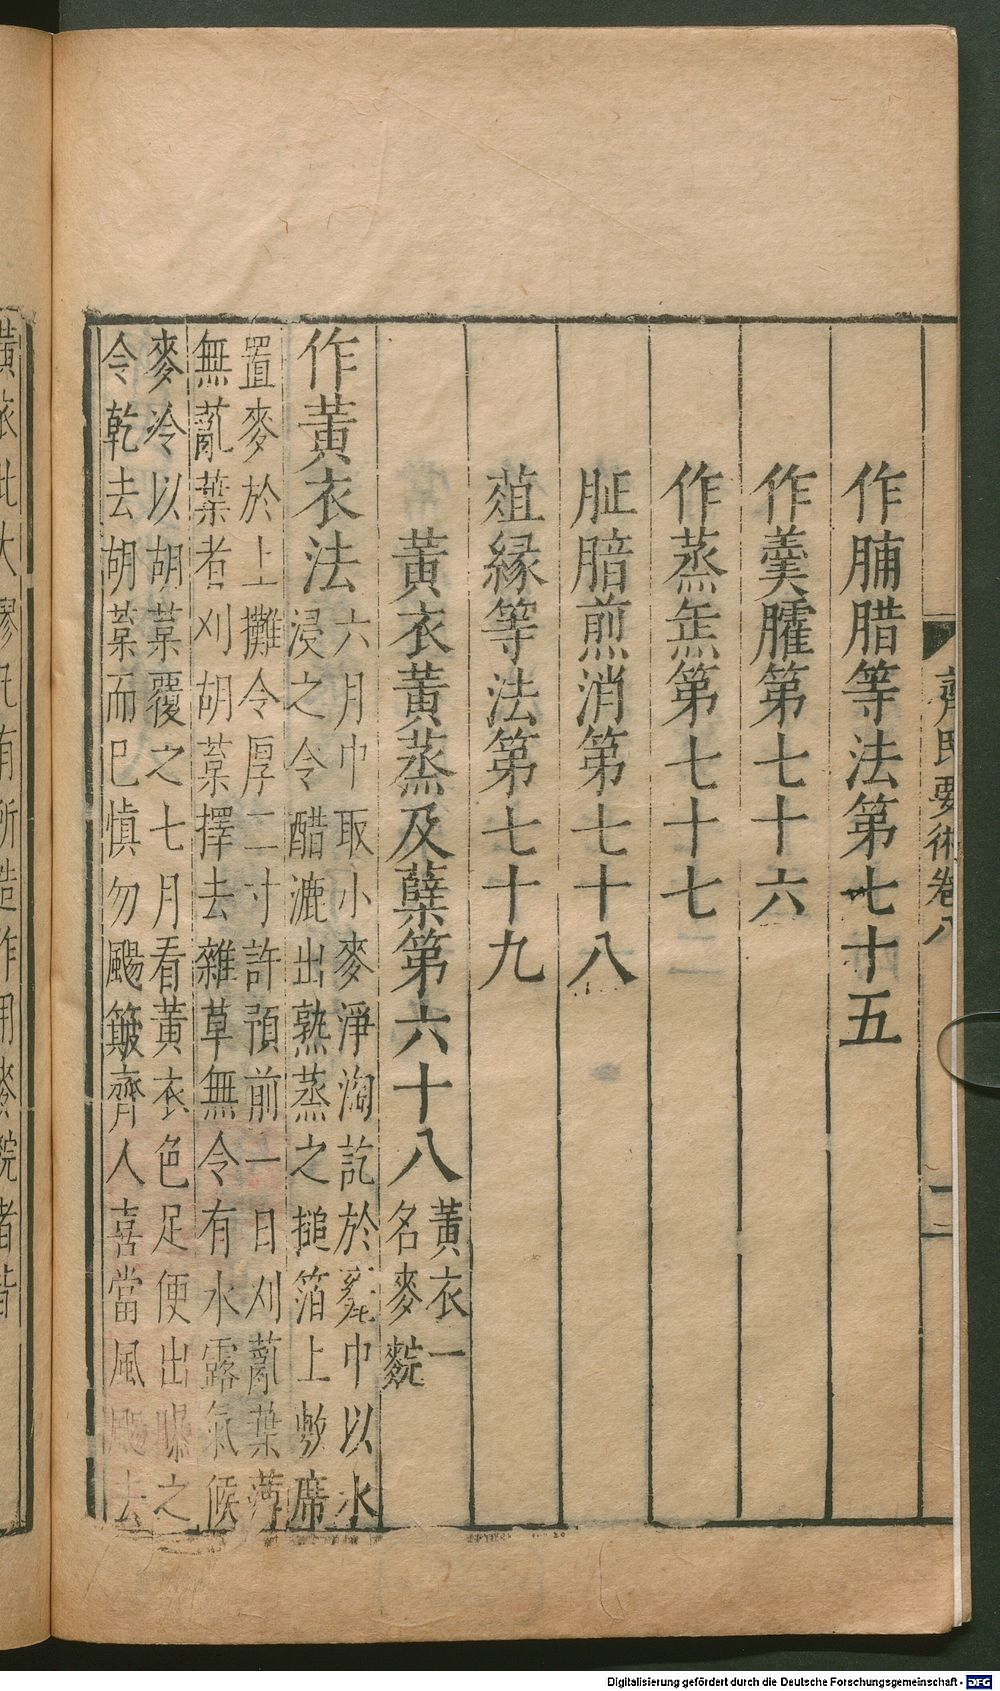 齊民要術卷八
二
作脯腊等法第七十五
作羹臛第七十六
作蒸缹第七十七
脏腤煎消第七十八
葅緣等法第七十九
黃衣黃蒸及蘖第六十八
黃衣一
名麥䴷
作黃衣法
六月中取小麥淨淘訖於瓮中以水
浸之令醋漉出熟蒸之搥箔上敷席
置麥於上攤令厚二寸許預前一日刈薍葉薄
無薍葉者刈胡葈擇去雜草無令有水露氣候
麥冷以胡葈覆之七月看黃衣色足便出曝之
令乾去胡葈而已慎勿颺簸齊人喜當風颺去
黃衣此大謬凡有所造作用麥䴷者皆
Digitalisierung gefördert durch die Deutsche Forschungsgemeinschaft - DFG